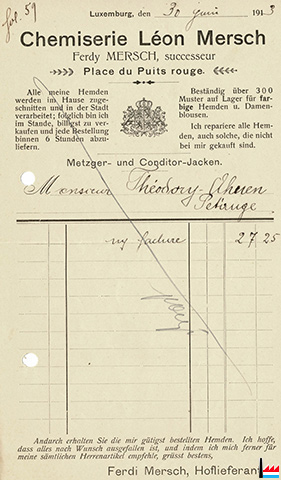 fol. 59
Luxemburg, den 30 juin 1913
Chemiserie Léon Mersch
Ferdy MERSCH, successeur
Place du Puits rouge.
Alle meine Hemden
werden im Hause zuge-
schnitten und in der Stadt
verarbeitet; folglich bin ich
im Stande, billigst zu ver-
kaufen und jede Bestellung
binnen 6 Stunden abzu-
liefern.
Beständig über 300
Muster auf Lager für far-
bige Hemden u. Damen-
blousen.
Ich repariere alle Hem-
den, auch solche, die nicht
bei mir gekauft sind.
Metzger- und Conditor-Jacken.
Monsieur Théodory-
Petange
facture 27 25
Andurch erhalten Sie die mir gütigst bestellten Hemden. Ich hoffe,
dass alles nach Wunsch ausgefallen ist, und indem ich mich ferner für
meine sämtlichen Herrenartikel empfehle, grüsst bestens,
Ferdi Mersch, Hoflieferant